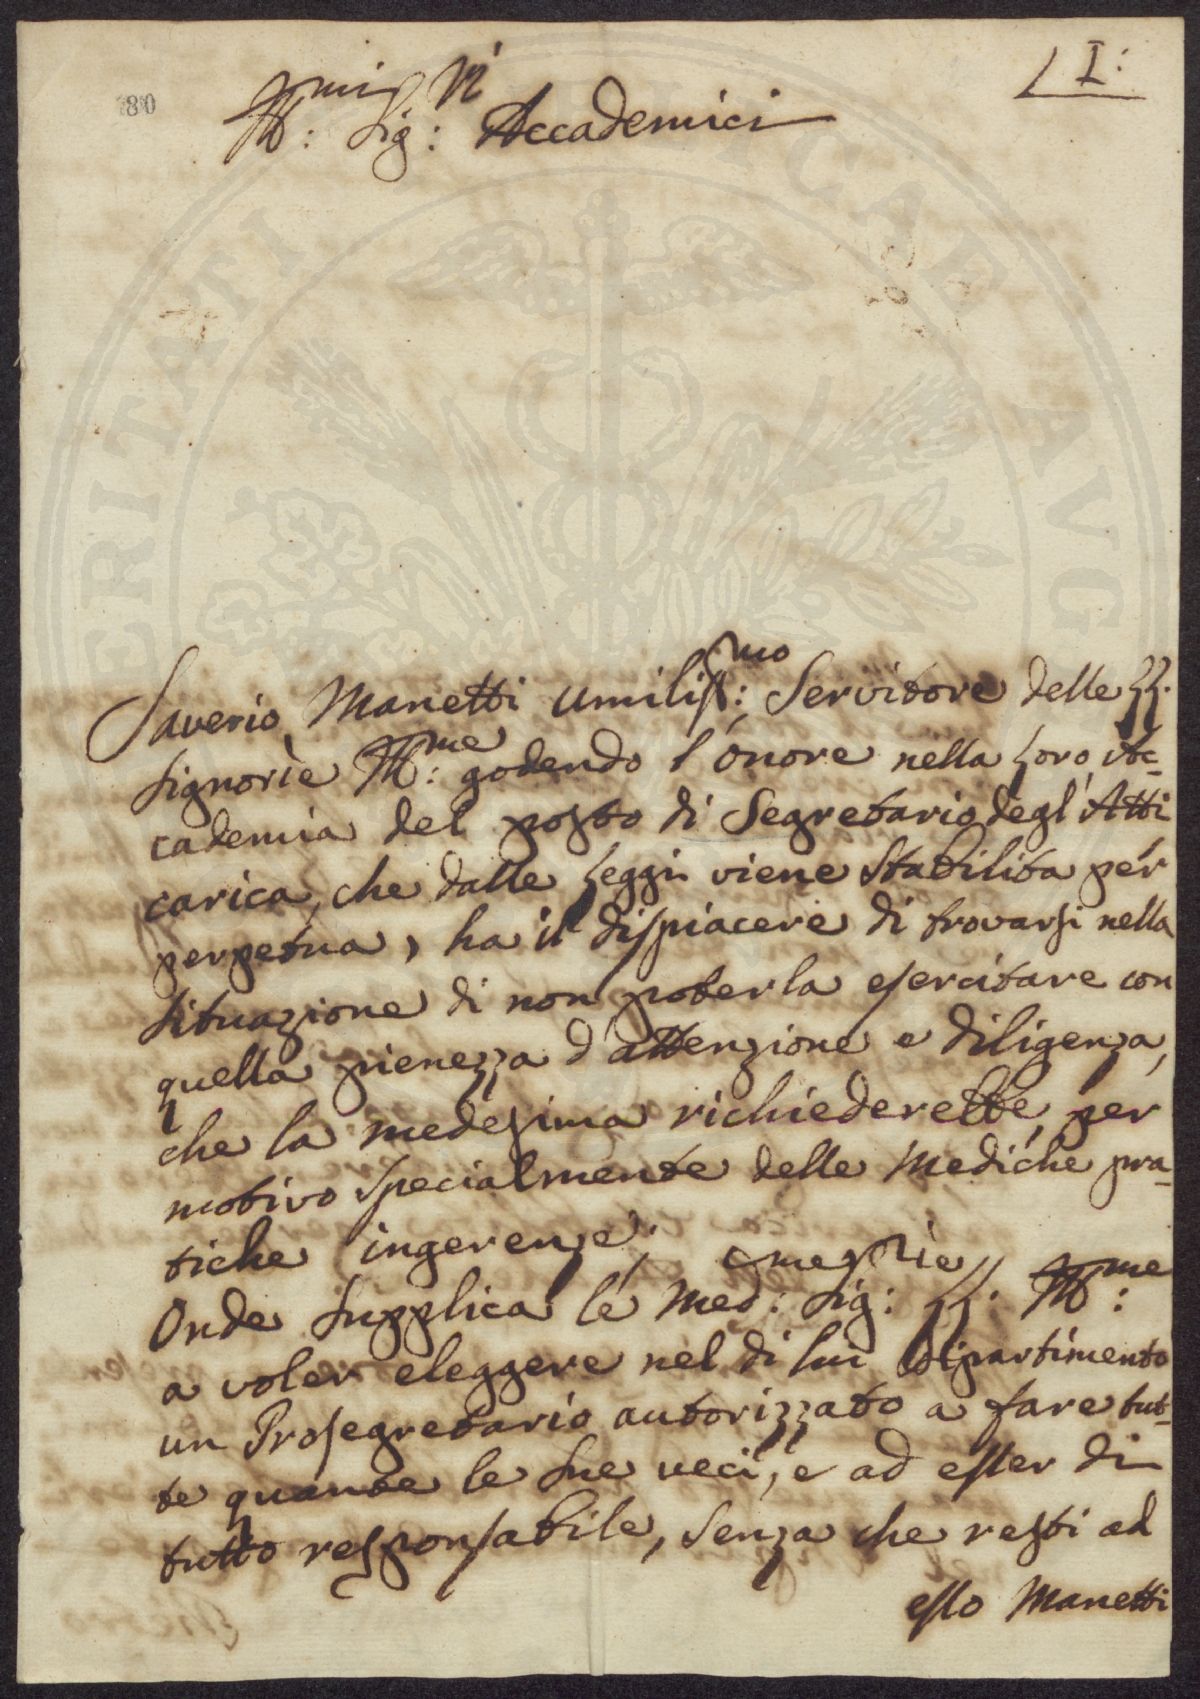 I:
80
Ill:mi Sig:ri Accademici
Saverio Manetti umiliss:mo Servitore delle LL.
Signorie Ill:me godendo l'onore nella Loro Ac=
cademia del posto di Segretario degl'Atti
carica, che dalle Leggi viene stabilita per
perpetua, ha il dispiacere di trovarsi nella
situazione di non poterla esercitare con
quella pienezza d'attenzione e diligenza,
che la medesima richiederebbe, per
motivo specialmente delle Mediche pra=
tiche ingerenze;
Onde supplica le Med:me Sig:rie LL. Ill:me
a voler eleggere nel di lui Dipartimento
un Prosegretario autorizzato a fare tut=
te quante le sue veci, e ad esser di
tutto responsabile, senza che resti ad
esso Manetti